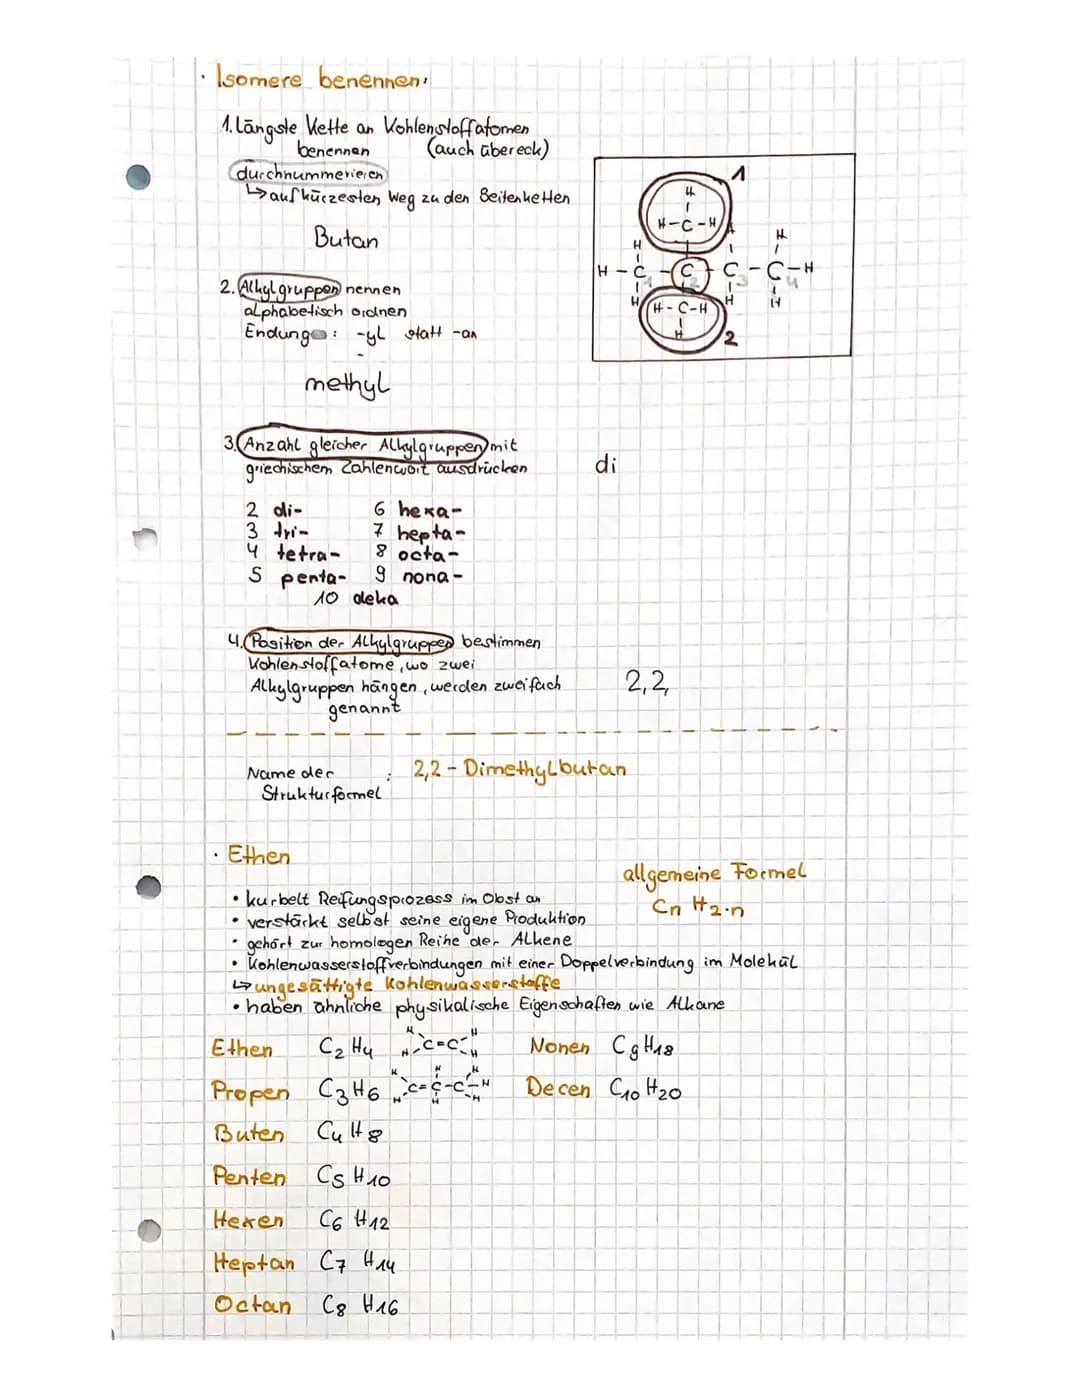 · Isomere benennen:
1. Längste Kette an Kohlenstoffatomen
benennen (auch übereck)
durchnummerieren
↳ auf kürzesten Weg zu den Seitenketten
Butan
2. Alkylgruppen nennen
alphabetisch ordnen
Endung : -yl statt -an
methyl
1
H
H-C-H
H H H
H-C-C-C-C-H
1 2 3 4
H H H
H-C-H
H
2
3. Anzahl gleicher Alkylgruppen mit
griechischem Zahlenwort ausdrücken
di
2 di- 6 hexa-
3 tri- 7 hepta-
4 tetra- 8 octa-
5 penta- 9 nona-
10 deka
4. Position der Alkylgruppen bestimmen
Kohlenstoffatome, wo zwei
Alkylgruppen hängen, werden zweifach
genannt
2,2,
Name der : 2,2-Dimethylbutan
Strukturformel
· Ethen
allgemeine Formel
Cn H2·n
• kurbelt Reifungsprozess im Obst an
• verstärkt selbst seine eigene Produktion
• gehört zur homologen Reihe der Alkene
• Kohlenwasserstoffverbindungen mit einer Doppelverbindung im Molekül
↳ ungesättigte Kohlenwasserstoffe
• haben ähnliche physikalische Eigenschaften wie Alkane
Ethen C2 H4 H H C=C H H Nonen C9 H18
Propen C3 H6 H H C=C-C-H H H H H Decen C10 H20
Buten C4 H8
Penten C5 H10
Hexen C6 H12
Heptan C7 H14
Octan C8 H16